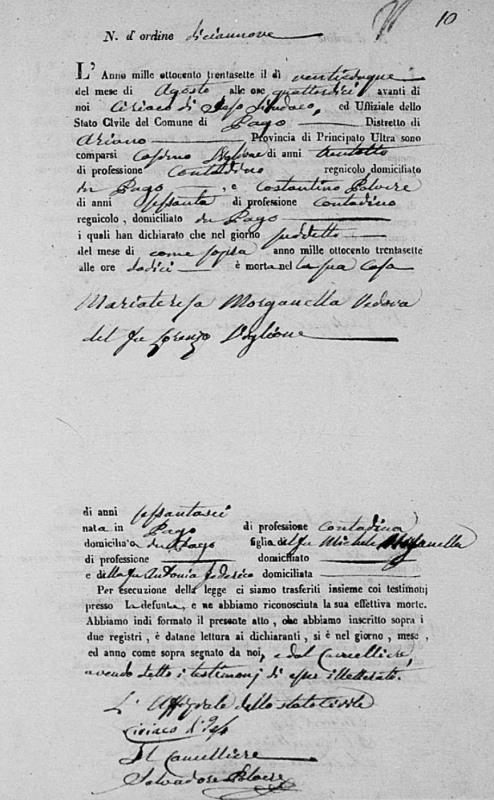 10
N. d'ordine diciannove
L'Anno mille ottocento trentasette il di venticinque
del mese di Agosto alle ore quattordici avanti di
noi Ciriaco di Jeso Sindaco, ed Uffiziale dello
Stato Civile del Comune di Pago Distretto di
Ariano Provincia di Principato Ultra sono
comparsi di anni trentotto
di professione Contadino regnicolo domiciliato
in Pago, e Costantino Polvere
di anni sessanta di professione Contadino
regnicolo, domiciliato in Pago
i quali han dichiarato che nel giorno suddetto
del mese di come sopra anno mille ottocento trentasette
alle ore dodici è morta nel la sua Casa
Mariateresa Morganella Vedova
del fu Lorenzo
di anni sessantasei
nata in Pago di professione contadina
domiciliata in Pago figlia del fu Michele Morganella
di professione domiciliato
e della fu Antonia domiciliata
Per esecuzione della legge ci siamo trasferiti insieme coi testimonj
presso la defunta, e ne abbiamo riconosciuta la sua effettiva morte.
Abbiamo indi formato il presente atto, che abbiamo inscritto sopra i
due registri, è datane lettura ai dichiaranti, si è nel giorno, mese,
ed anno come sopra segnato da noi, e dal Cancelliere,
avendo detto i testimonj di esser illetterati.
L'Uffiziale dello stato Civile
Ciriaco d'Jeso
Il Cancelliere
Salvadore Polvere